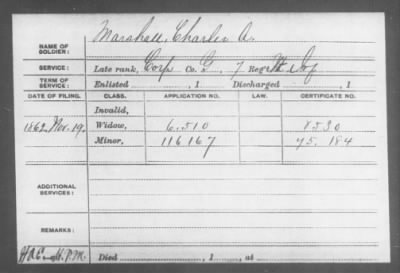 NAME OF SOLDIER: Marshall, Charles A.
SERVICE: Late rank, Corp Co. G, 7 Reg't Inf
TERM OF SERVICE: Enlisted , 1 Discharged , 1
DATE OF FILING. CLASS. APPLICATION NO. LAW. CERTIFICATE NO.
Invalid,
1862 Nov. 19, Widow, 6.510 8530
Minor, 116167 75.184
ADDITIONAL SERVICES:
REMARKS:
Died , 1 , at